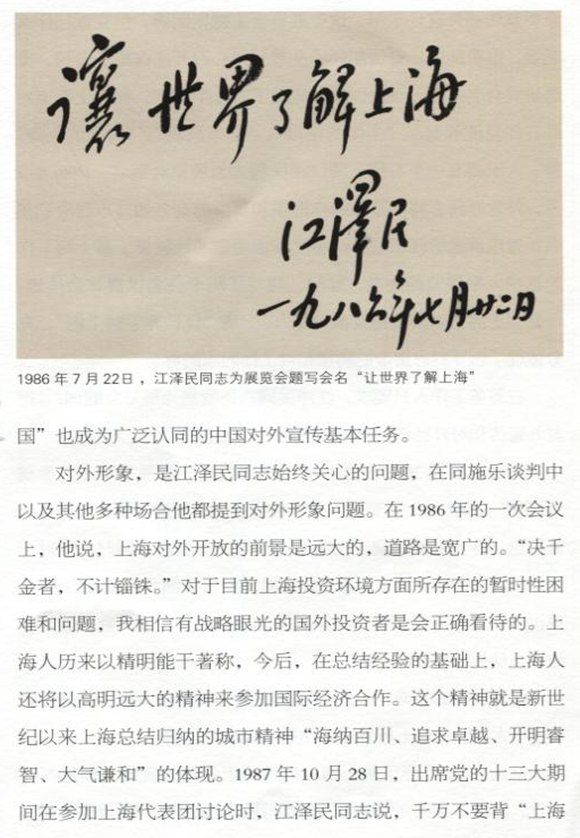 讓世界了解上海
江澤民
一九八六年七月廿二日
1986 年 7 月 22日，江泽民同志为展览会题写会名“让世界了解上海”
国”也成为广泛认同的中国对外宣传基本任务。
对外形象，是江泽民同志始终关心的问题，在同施乐谈判中
以及其他多种场合他都提到对外形象问题。在 1986 年的一次会议
上，他说，上海对外开放的前景是远大的，道路是宽广的。“决千
金者，不计锱铢。”对于目前上海投资环境方面所存在的暂时性困
难和问题，我相信有战略眼光的国外投资者是会正确看待的。上
海人历来以精明能干著称，今后，在总结经验的基础上，上海人
还将以高明远大的精神来参加国际经济合作。这个精神就是新世
纪以来上海总结归纳的城市精神“海纳百川、追求卓越、开明睿
智、大气谦和”的体现。1987 年 10 月 28 日，出席党的十三大期
间在参加上海代表团讨论时，江泽民同志说，千万不要背“上海